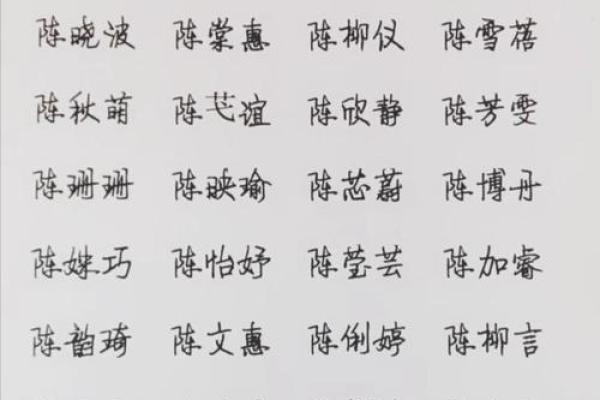 陈晓波 陈棠惠 陈柳仪 陈雪蓓
陈秋萌 陈芑谊 陈欣静 陈芳雯
陈珊珊 陈映瑜 陈芯蔚 陈博丹
陈姝巧 陈怡妤 陈莹芸 陈加睿
陈韵琦 陈文惠 陈俐婷 陈柳言